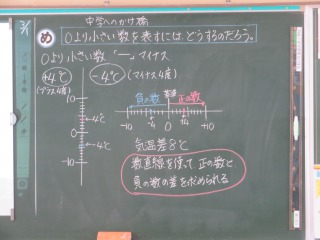 中学へのかけ橋
3/1
め 0より小さい数を表すには、どうするのだろう。
0より小さい数 「-」マイナス
+4℃ -4℃ (マイナス4度)
(プラス4度)
10
+4℃
0
-4℃
-10
負の数 正の数
-10 -4 0 +4 +10
気温差8℃
数直線を使って 正の数と
負の数の差を求められる